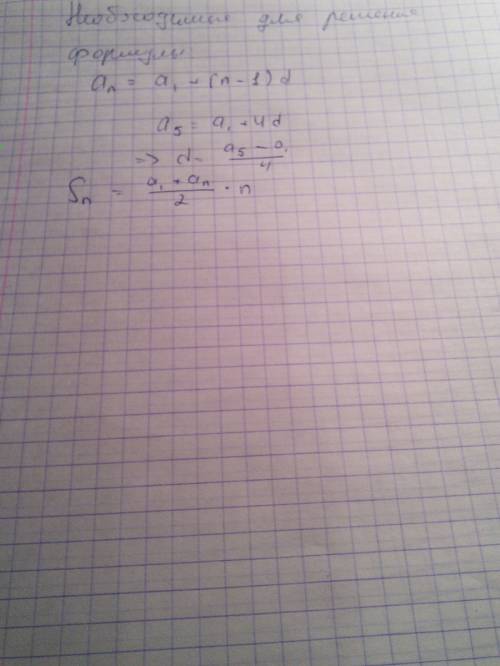 Необходимая для решения
формулы
aₙ = a₁ + (n - 1) d
a₅ = a₁ + 4d
=> d = (a₅ - a₁)/4
Sₙ = (a₁ + aₙ)/2 · n